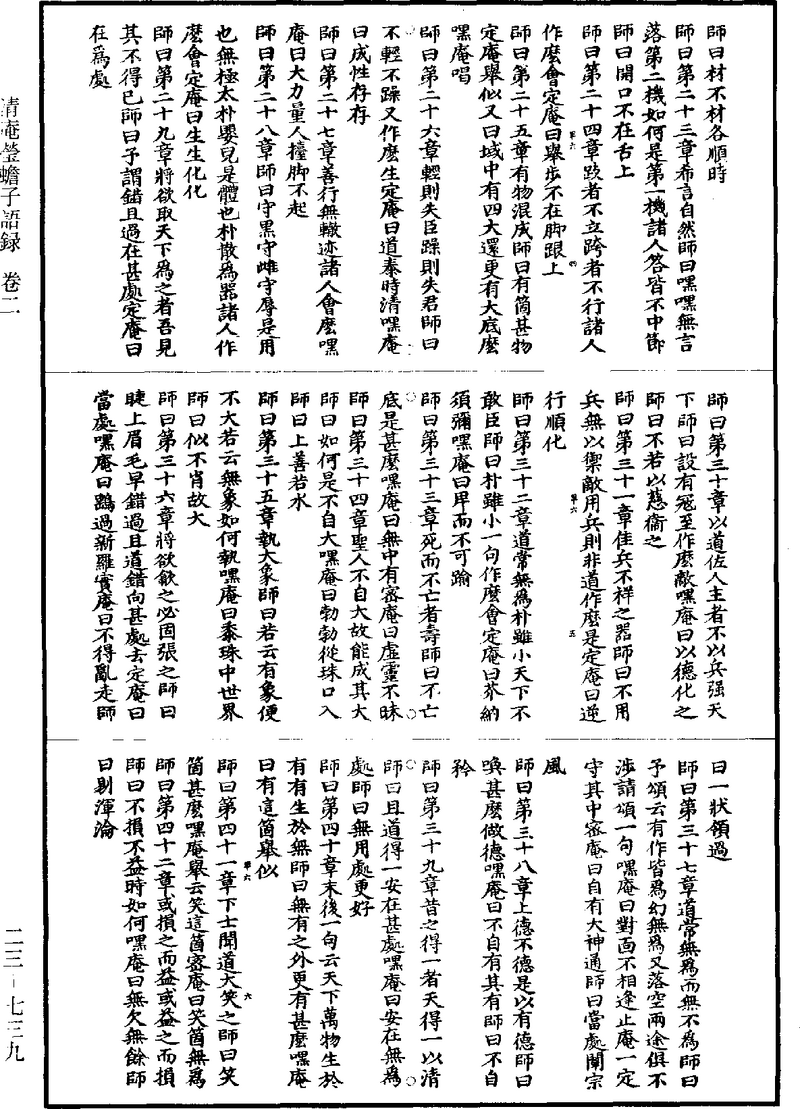 師曰材不材各順時
師曰第二十三章希言自然師曰嘿嘿無言
落第二機如何是第一機諸人答皆不中節
師曰開口不在舌上
師曰第二十四章跂者不立跨者不行諸人
作麽會定庵曰舉步不在脚跟上
師曰第二十五章有物混成師曰有箇甚物
定庵舉似又曰域中有四大還更有大底麽
嘿庵喝
師曰第二十六章輕則失臣躁則失君師曰
不輕不躁又作麽生定庵曰道泰時清嘿庵
曰成性存存
師曰第二十七章善行無轍迹諸人會麽嘿
庵曰大力量人擡脚不起
師曰第二十八章師曰守黑守雌守辱是用
也無極太朴嬰兒是體也朴散爲器諸人作
麽會定庵曰生生化化
師曰第二十九章將欲取天下爲之者吾見
其不得已師曰予謂錯且過在甚處定庵曰
在爲處
師曰第三十章以道佐人主者不以兵强天
下師曰設有冦至作麽敵嘿庵曰以德化之
師曰不若以慈衞之
師曰第三十一章佳兵不祥之器師曰不用
兵無以禦敵用兵則非道作麽是定庵曰逆
行順化
師曰第三十二章道常無爲朴雖小天下不
敢臣師曰朴雖小一句作麽會定庵曰芥納
須彌嘿庵曰卑而不可踰
師曰第三十三章死而不亡者壽師曰不亡
底是甚麽嘿庵曰無中有密庵曰虛靈不昧
師曰第三十四章聖人不自大故能成其大
師曰如何是不自大嘿庵曰勃勃從珠口入
師曰上善若水
師曰第三十五章執大象師曰若云有象便
不大若云無象如何執嘿庵曰黍珠中世界
師曰似不肖故大
師曰第三十六章將欲歙之必固張之師曰
睫上眉毛早錯過且道錯向甚處去定庵曰
當處嘿庵曰鷂過新羅實庵曰不得亂走師
曰一狀領過
師曰第三十七章道常無爲而無不爲師曰
予頌云有作皆爲幻無爲又落空兩途俱不
涉請頌一句嘿庵曰對面不相逢止庵一定
守其中密庵曰自有大神通師曰當處闡宗
風
師曰第三十八章上德不德是以有德師曰
喚甚麽做德嘿庵曰不自有其有師曰不自
矜
師曰第三十九章昔之得一者天得一以清
師曰且道得一安在甚處嘿庵曰安在無爲
處師曰無用處更好
師曰第四十章末後一句云天下萬物生於
有有生於無師曰無有之外更有甚麽嘿庵
曰有這箇舉似
師曰第四十一章下士聞道大笑之師曰笑
箇甚麽嘿庵舉云笑這箇密庵曰笑箇無爲
師曰第四十二章或損之而益或益之而損
師曰不損不益時如何嘿庵曰無欠無餘師
曰剔渾淪
清庵瑩蟾子語録 卷二
二三-七三九